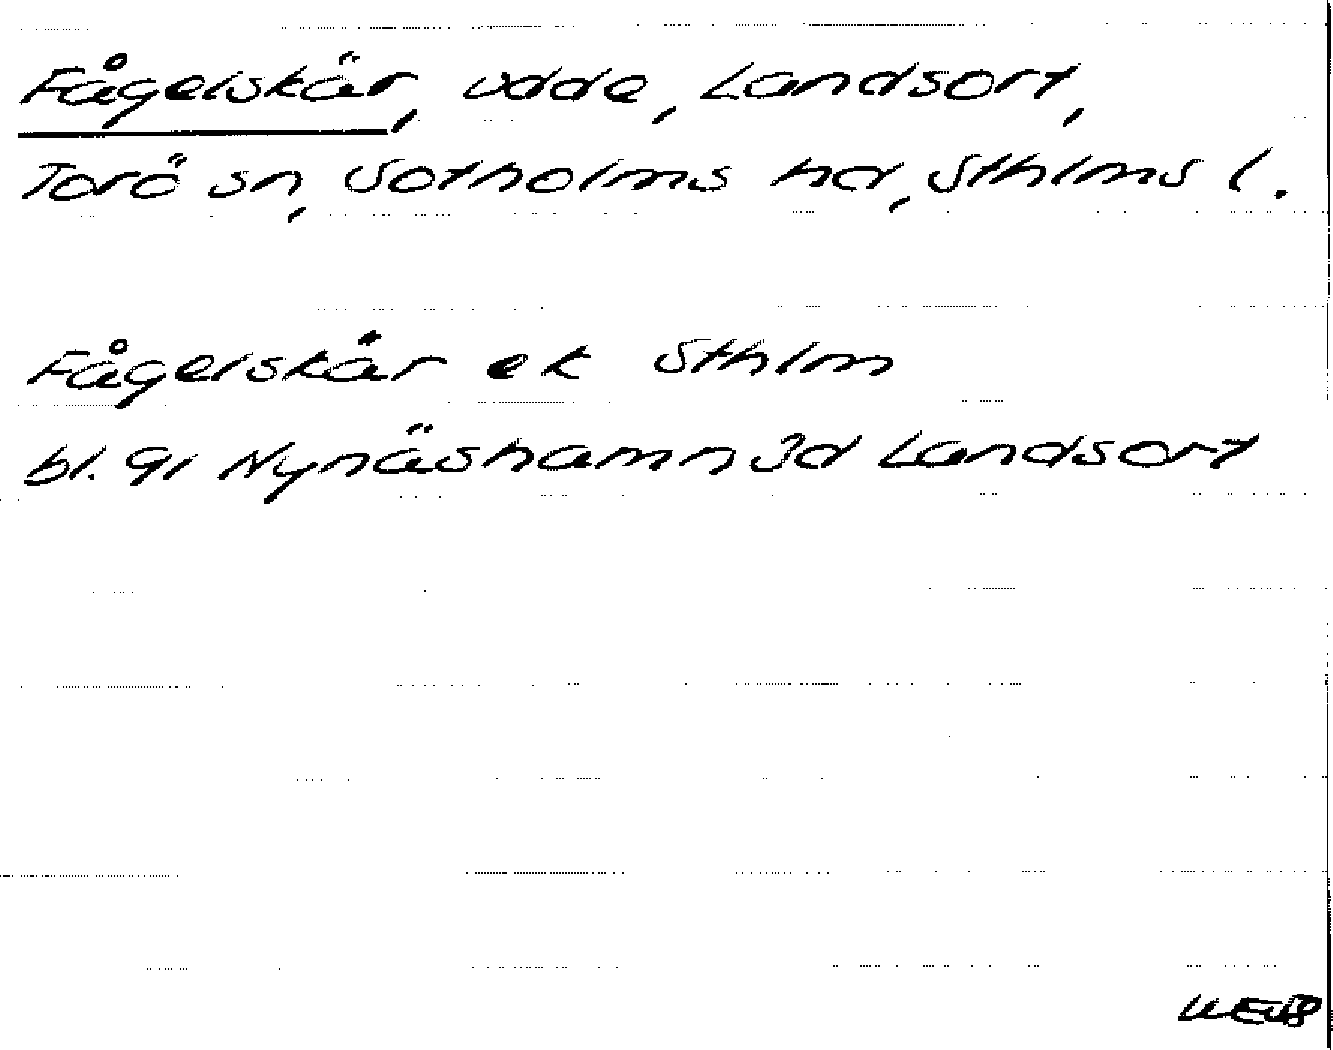 Fågelskär, udde, Landsort,
Torö sn, Sotholms hd, Sthlms l.
Fågelskär ek Sthlm
bl. 91 Nynäshamn Jd Landsort